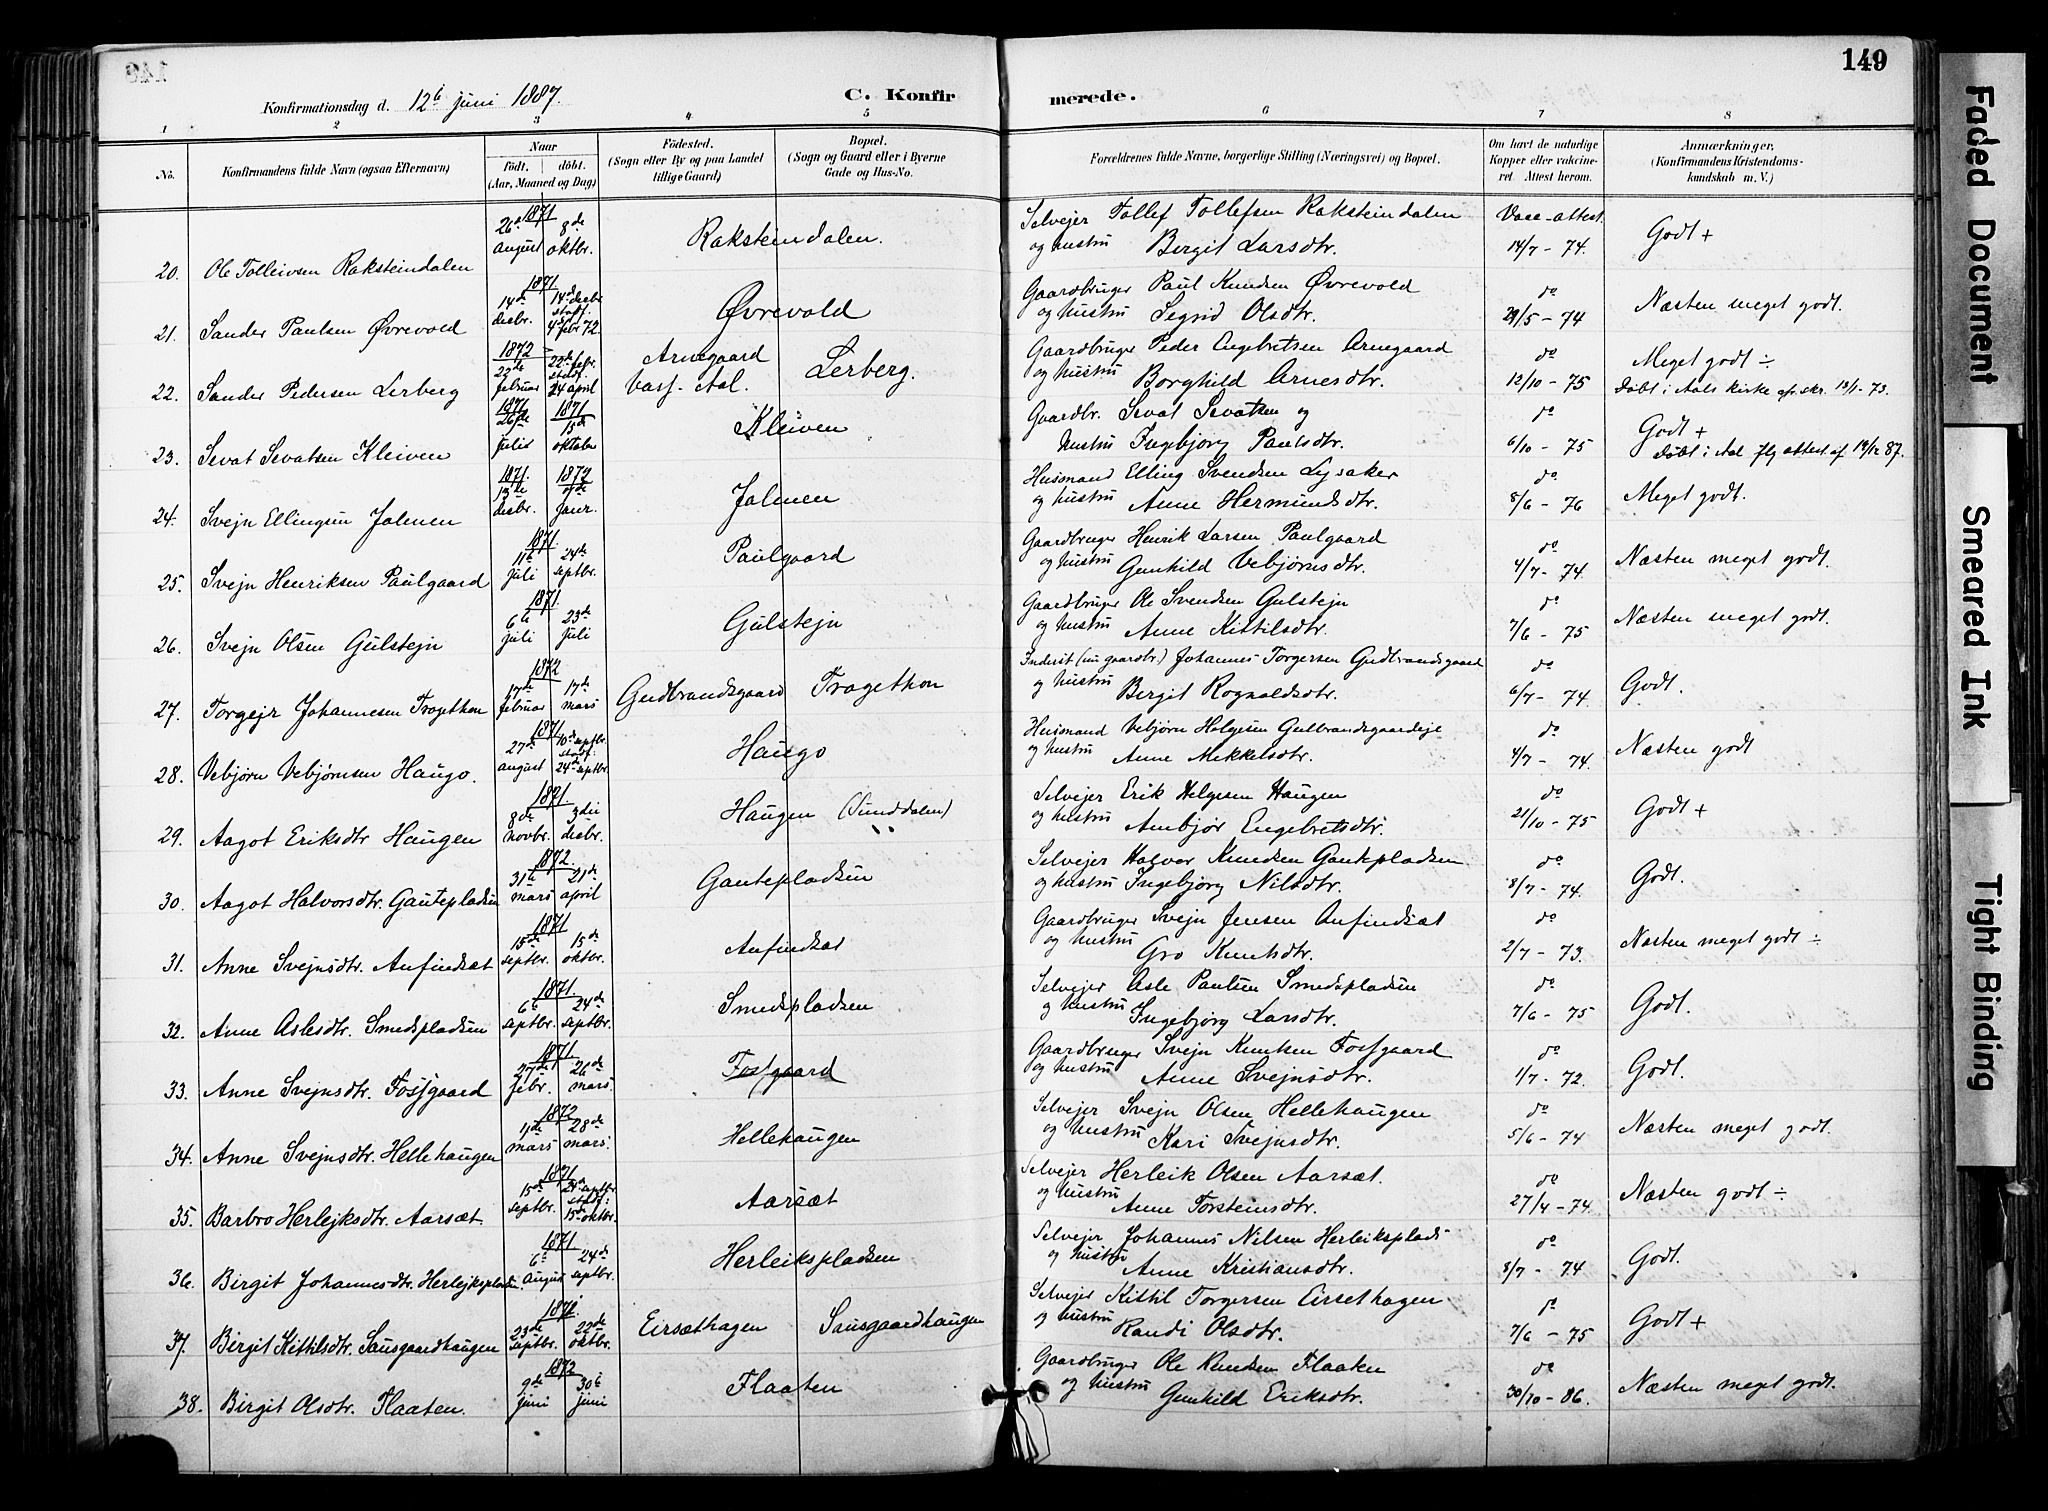 149
Konfirmationsdag d. 12te juni 1887.
C. Konfirmerede.
1 2 3 4 5 6 7 8
No.
Konfirmandens fulde Navn (ogsaa Efternavn)
Naar
födt. döbt.
(Aar, Maaned og Dag)
Födested.
(Sogn eller By og paa Landet
tillige Gaard)
Bopæl.
(Sogn og Gaard eller i Byerne
Gade og Hus-No.
Forældrenes fulde Navne, borgerlige Stilling (Næringsvei) og Bopæl.
Om havt de naturlige
Kopper eller vakcine-
ret. Attest herom.
Anmærkninger,
(Konfirmandens Kristendoms-
kundskab m. V.)
20. Ole Tolleivsen Raksteindalen 1871 26de august 8de oktbr. Raksteindalen. Selvejer Tollef Tollefsen Raksteindalen Vacc-attest. Godt +
og hustru Birgit Larsdtr. 14/7 - 74.
21. Sander Paulsen Øvrevold 1871 14de desbr. 14de desbr stadf. 4 febr 72 Øvrevold Gaardbruger Paul Knudsen Øvrevold do Næsten meget godt.
og hustru Segrid Olsdtr. 29/5 - 74
22. Sander Pedersen Lerberg 1872 22de februar 22de febr. stadf. 24 april Arnegaard Lerberg. Gaardbruger Peder Engebretsen Arnegaard do Meget godt ÷
Aal. og hustru Borghild Arnesdtr. 12/10 - 75 Døbt i Aals kirke
23. Sevat Sevatsen Kleiven 1871 26de 1871 15de oktober Kleiven Gaardbr. Sevat Sevatsen og do Godt +
hustru Ingebjørg Paulsdtr. 6/10 - 75 Døbt i Aal
24. Svejn Ellingsen Jolmen 1871. desbr. 1872 Janr. Jolmen Husmand Elling Svendsen Lysaker do Meget godt.
og hustru Anne Hermundsdtr. 8/6 - 76
25. Svejn Henriksen Paulgaard 1871. 11te Juli 24de septbr. Paulgaard Gaardbruger Henrik Larsen Paulgaard do Næsten meget godt.
og hustru Gunhild Vebjørnsdtr. 4/7 - 74.
26. Svejn Olsen Gulstejn 1871. 6te Juli 23de Juli Gulstejn Gaardbruger Ole Svendsen Gulstejn do Næsten meget godt.
og hustru Anne Kittilsdtr. 7/6 - 75
27. Torgejr Johannesen Trogethon 1872 17de februar 17de mars Gudbrandsgaard Trogethon Inderst (nu gaardbr.) Johannes Torgersen Gudbrandsgaard do Godt.
og hustru Birgit Rognaldsdtr. 6/7 - 74.
28. Vebjørn Vebjørnsen Haugo. 1871 27de august 10de septbr. stadf. 24de septbr. Haugo Husmand Vebjørn Helgesen Gulbrandsgaardeje do Næsten godt
og hustru Anne Mikkelsdtr. 4/7 - 74.
29. Aagot Eriksdtr Haugen 1871 8de novbr. 3die desbr. Haugen (Sunddalen) Selvejer Erik Helgesen Haugen do Godt +
og hustru Ambjør Engebretsdtr. 21/10 - 75
30. Aagot Halvorsdtr. Gautepladsen 1872. 31te mars 21de april Gautepladsen Selvejer Halvor Knudsen Gautepladsen do Godt.
og hustru Ingebjørg Nilsdtr. 8/7 - 74.
31. Anne Svejnsdtr. Anfindset 1871 15de septbr. 15de oktbr. Anfindset Gaardbruger Svejn Jensen Anfindsæt do Næsten meget godt ÷
og hustru Gro Knutsdtr. 2/7 - 73.
32. Anne Aslesdtr. Smedspladsen 1871. 6te septbr. 24de septbr. Smedspladsen Selvejer Asle Paulsen Smedspladsen do Godt.
og hustru Ingebjørg Larsdtr. 7/6 - 75
33. Anne Svejnsdtr. Fossgaard 1871 27de febr. 26de mars Fossgaard Gaardbruger Svejn Knutsen Fossgaard do Godt.
og hustru Anne Svejnsdtr. 1/7 - 72.
34. Anne Svejnsdtr. Hellehaugen 1872 11de mars 28de mars. Hellehaugen Selvejer Svejn Olsen Hellehaugen do Næsten meget godt.
og hustru Kari Svejnsdtr. 5/6 - 74
35. Barbro Herlejksdtr. Aarsæt. 1871 15de septbr. 24de septbr stadf: 15de oktbr. Aarsæt Selvejer Herleik Olsen Aarsæt. do Næsten godt ÷
og hustru Anne Torsteinsdtr. 27/4 - 74.
36. Birgit Johannesdtr. Herlejkspladsen. 1871 6te August 24de septbr. Herleikspladsen Selvejer Johannes Nilsen Herleiksplads do Godt.
og hustru Anne Kristiansdtr. 8/7 - 74
37. Birgit Kittilsdtr. Sausgaardhaugen 1871. 23de septbr. 22de oktbr. Eirsæthagen Sausgaardhaugen Selvejer Kittil Torgersen Eirsethagen do Godt +
og hustru Randi Olsdtr. 7/6 - 75
38. Birgit Olsdtr. Flaaten. 1872 9de juni 30te juni Flaaten Gaardbruger Ole Knudsen Flaaten do Næsten meget godt.
og hustru Gunhild Eriksdtr. 30/10 - 86.
Faded Document
Smeared Ink
Tight Binding